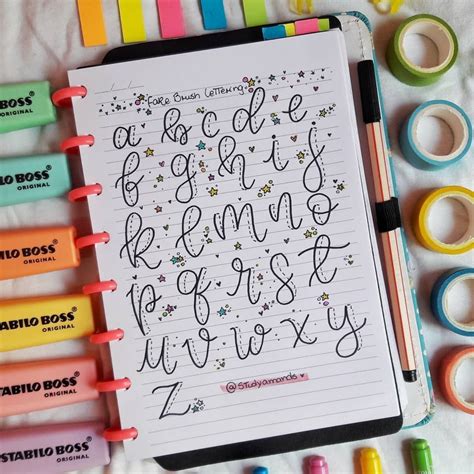 Fake Brush Lettering
a b c d e
f g h i j
k l m n o
p q r s t
u v w x y
z
@studyamands
BOSS
ORIGINAL
STABILO BOSS
ORIGINAL
STABILO BOSS
ORIGINAL
STABILO BOSS
ORIGINAL
STABILO BOSS
ORIGINAL
STABILO BOSS
ORIGINAL